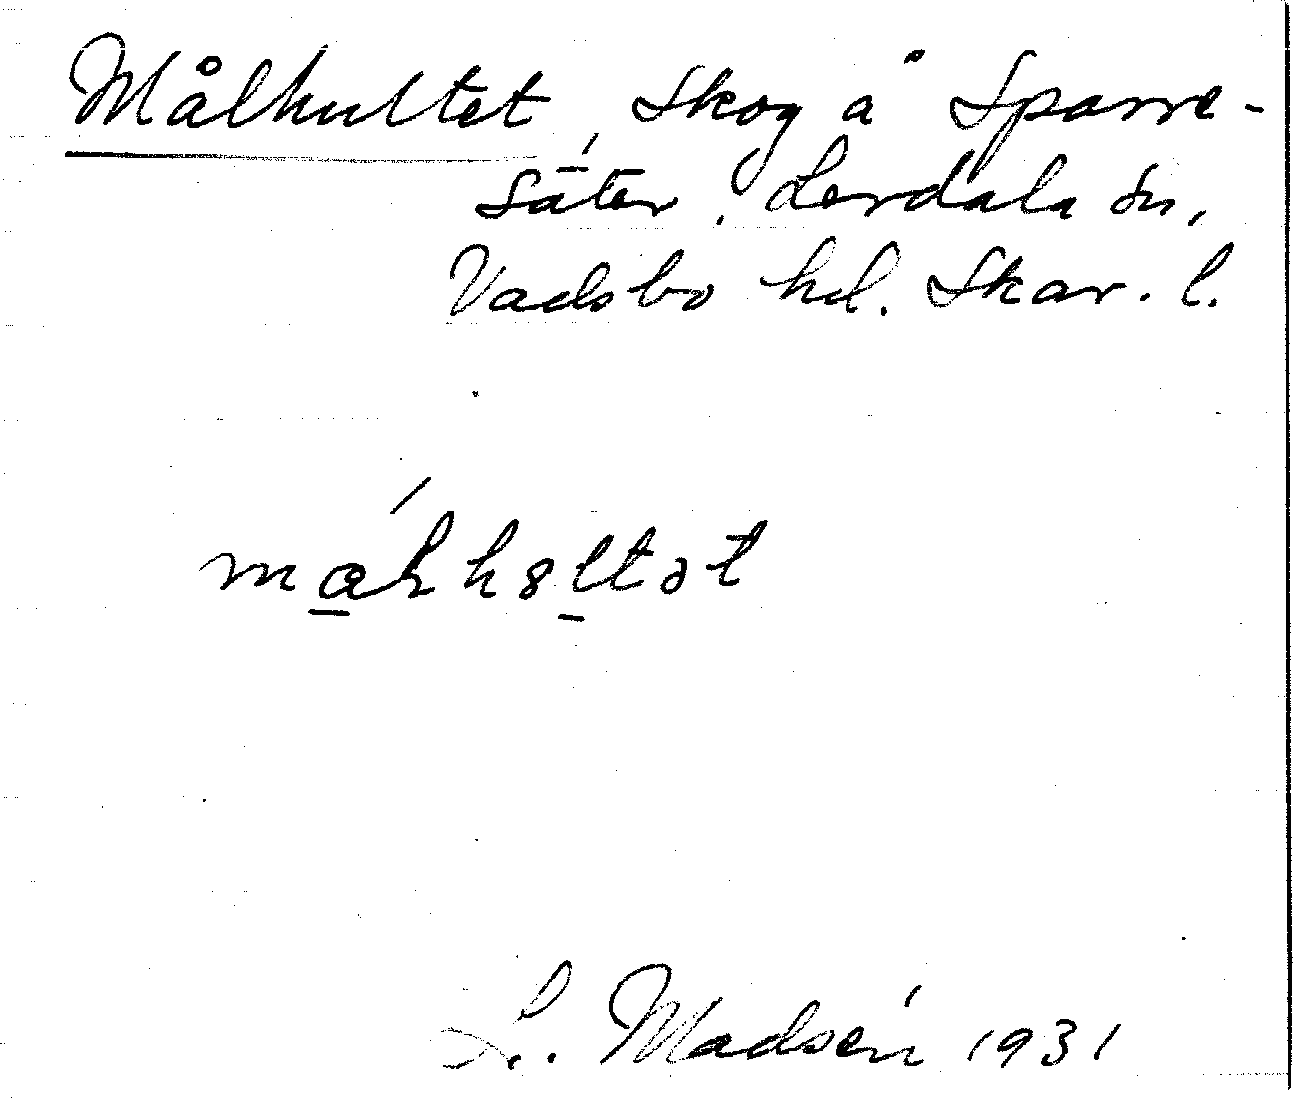 Målhultet, Skog å Sparre-
säter, Lerdala sn,
Vadsbo hd. Skar. l.
L. Madsén 1931